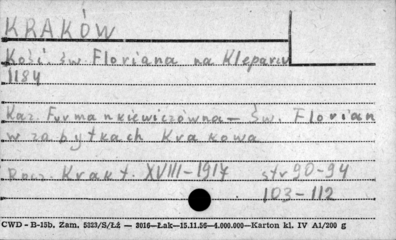 KRAKÓW
Kość. św. Floriana na Kleparzu
1184
Kaz. Furmankiewiczówna — Św. Florian
w zabytkach Krakowa
Rocz. Krakt. XVIII-1917 str 90-94
103-112
CWD - B-15b. Zam. 5323/S/Łź — 3016—Łak—15.11.56—4.000.000—Karton kl. IV A1/200 g